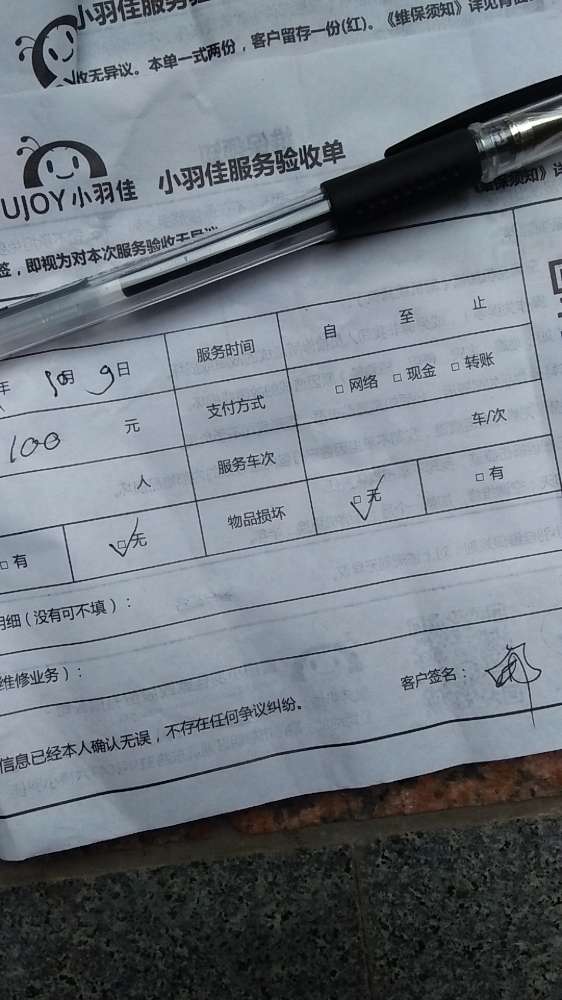 小羽佳服务验
收无异议。本单一式两份，客户留存一份(红)。《维保须知》详见背面
UJOY 小羽佳 小羽佳服务验收单
《维保须知》详
签，即视为对本次服务验收无异议
年 10月 9日 服务时间 自 至 止
100 元 支付方式 □ 网络 □ 现金 □ 转账
人 服务车次 车/次
□ 有 □ 无 物品损坏 □ 无 □ 有
明细（没有可不填）：
维修业务）：
客户签名：
信息已经本人确认无误，不存在任何争议纠纷。